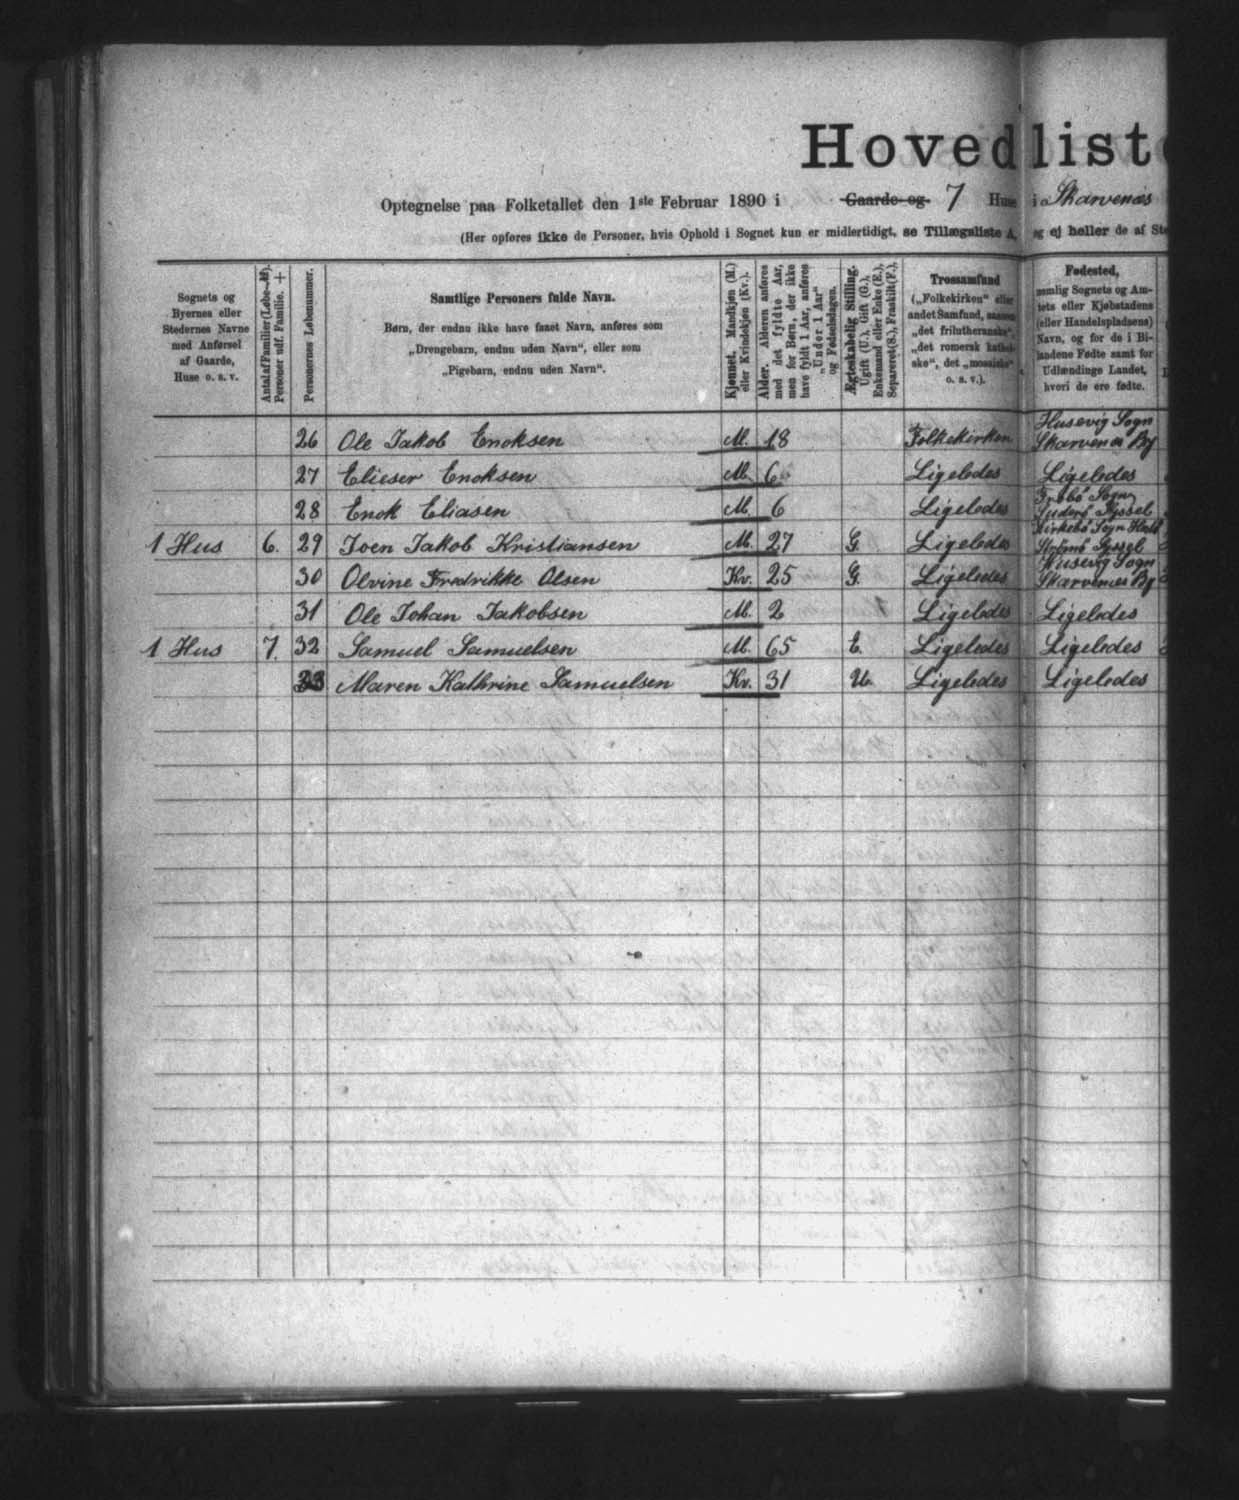 Hovedliste
Optegnelse paa Folketallet den 1ste Februar 1890 i Gaarde og 7 Huse i Skarvenæs
(Her opføres ikke de Personer, hvis Ophold i Sognet kun er midlertidigt, se Tillægsliste A, og ej heller de af
Sognets og
Byernes eller
Stedernes Navne
med Anførsel
af Gaarde,
Huse o. s. v.
Antal af Familier (Løbe-№).
Personer udf. Familie. +
Personernes Løbenummer.
Samtlige Personers fulde Navn.
Børn, der endnu ikke have faaet Navn, anføres som
„Drengebarn, endnu uden Navn“, eller som
„Pigebarn, endnu uden Navn“.
Kjønnet. Mandkjøn (M.)
eller Kvindekjøn (Kv.).
Alder. Alderen anføres
med det fyldte Aar,
men for Børn, der ikke
have fyldt 1 Aar, anføres
„Under 1 Aar“
og Fødselsdagen.
Ægteskabelig Stilling.
Ugift (U.), Gift (G.),
Enkemand eller Enke (E.),
Separeret (S.), Fraskilt (F.),
Trossamfund
(„Folkekirken“ eller
andet Samfund, saasom
„det frilutheranske“,
„det romersk katholske“, det „mosaiske“
o. s. v.).
Fødested,
nemlig Sognets og Amtets eller Kjøbstadens
(eller Handelspladsens)
Navn, og for de i Bilandene Fødte samt for
Udlændinge Landet,
hvori de ere fødte.
26 Ole Jakob Enoksen M. 18 Folkekirken Husevig Sogn Skarvenæs By
27 Elieser Enoksen M. 6 Ligeledes Ligeledes
28 Enok Eliasen M. 6 Ligeledes Sogn Suderø Syssel
1 Hus 6. 29 Joen Jakob Kristiansen M. 27 G. Ligeledes Kirkebø Sogn Strømø Syssel
30 Olvine Fredrikke Olsen Kv. 25 G. Ligeledes Husevig Sogn Skarvenæs By
31 Ole Johan Jakobsen M. 2 Ligeledes Ligeledes
1 Hus 7. 32 Samuel Samuelsen M. 65 E. Ligeledes Ligeledes
33 Maren Kathrine Samuelsen Kv. 31 U. Ligeledes Ligeledes